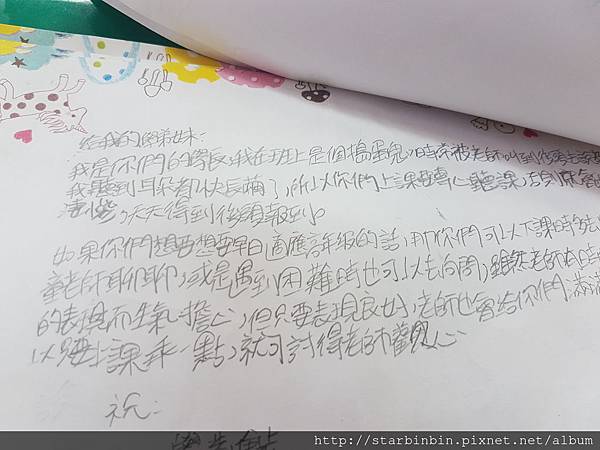 給我的學弟妹:
我是你們的學長,我在班上是個搗蛋鬼,時常被老師叫到後
我聽到耳朵都快長繭了,所以你們上課要專心聽課,否則
天天得到後頭報到。
如果你們想要想要早日適應 年級的話,那你們可以下課時
老師聊聊,或是遇到困難時也可以去問問,雖然老師有時
的表現而生氣、擔心,但只要表現良好,老師也會給你們滿滿
以 上課乖一點,就可討得老師歡心。
祝:
http://starbinbin.pixnet.net/album